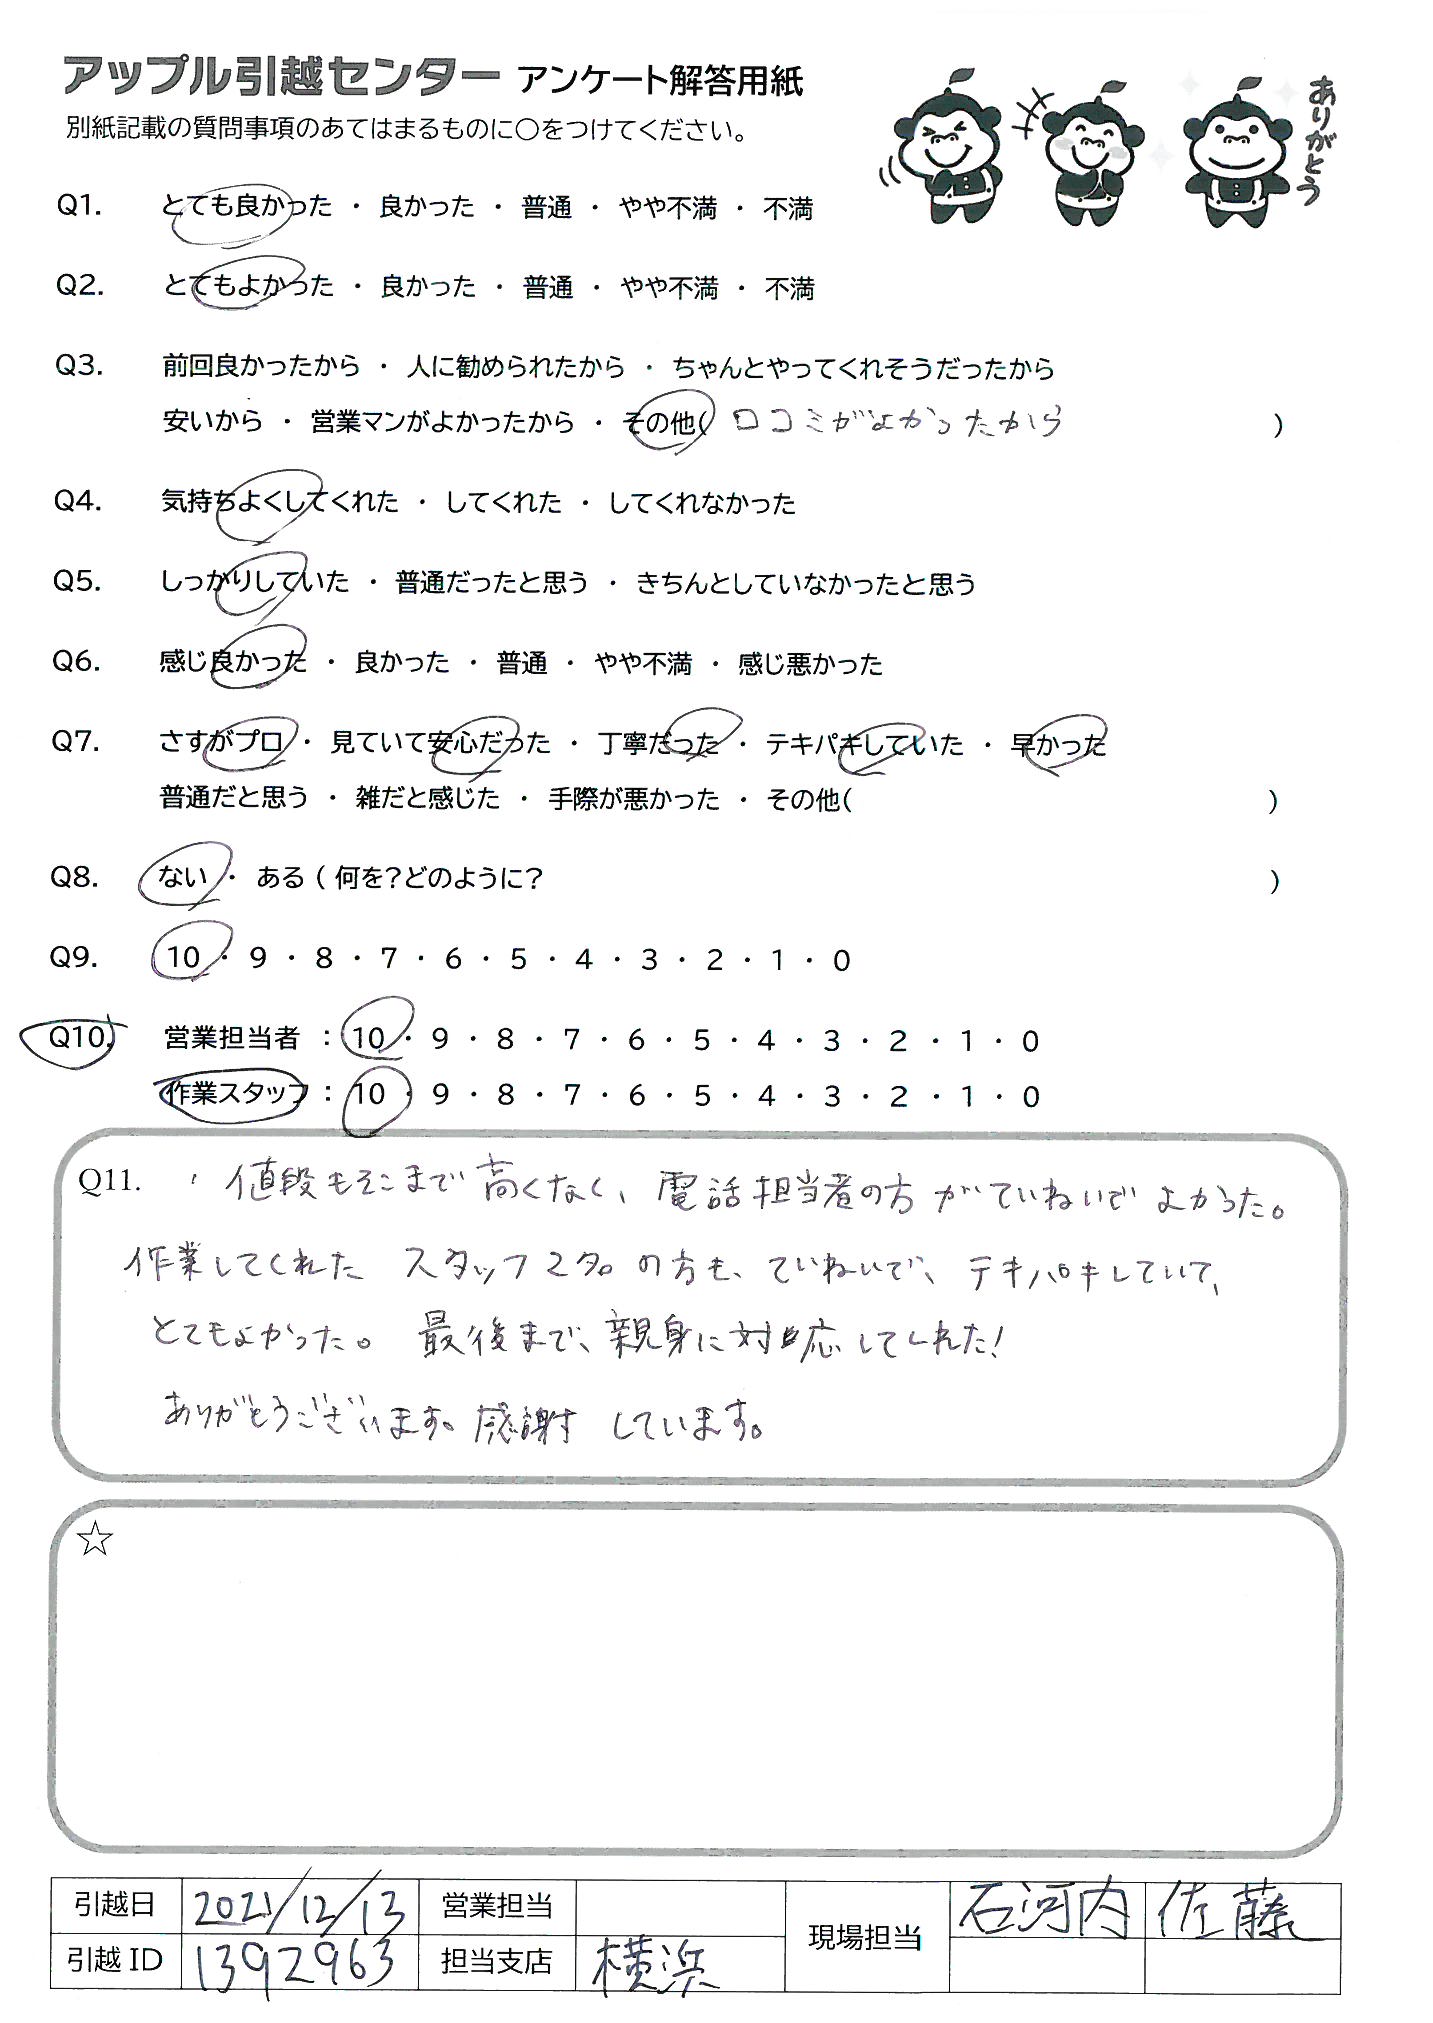 アップル引越センター アンケート解答用紙
別紙記載の質問事項のあてはまるものに○をつけてください。
ありがとう
Q1. とても良かった ・ 良かった ・ 普通 ・ やや不満 ・ 不満
Q2. とてもよかった ・ 良かった ・ 普通 ・ やや不満 ・ 不満
Q3. 前回良かったから ・ 人に勧められたから ・ ちゃんとやってくれそうだったから
安いから ・ 営業マンがよかったから ・ その他( 口コミがよかったから )
Q4. 気持ちよくしてくれた ・ してくれた ・ してくれなかった
Q5. しっかりしていた ・ 普通だったと思う ・ きちんとしていなかったと思う
Q6. 感じ良かった ・ 良かった ・ 普通 ・ やや不満 ・ 感じ悪かった
Q7. さすがプロ ・ 見ていて安心だった ・ 丁寧だった ・ テキパキしていた ・ 早かった
普通だと思う ・ 雑だと感じた ・ 手際が悪かった ・ その他( )
Q8. ない ・ ある ( 何を?どのように? )
Q9. 10 ・ 9 ・ 8 ・ 7 ・ 6 ・ 5 ・ 4 ・ 3 ・ 2 ・ 1 ・ 0
Q10. 営業担当者 : 10 ・ 9 ・ 8 ・ 7 ・ 6 ・ 5 ・ 4 ・ 3 ・ 2 ・ 1 ・ 0
作業スタッフ : 10 ・ 9 ・ 8 ・ 7 ・ 6 ・ 5 ・ 4 ・ 3 ・ 2 ・ 1 ・ 0
Q11. ・値段もそこまで高くなく、電話担当者の方がていねいでよかった。
作業してくれた スタッフ2名の方も、ていねいで、テキパキしていて、
とてもよかった。 最後まで、親身に対応してくれた!
ありがとうございます。感謝 しています。
☆
引越日 2021/12/13 営業担当 現場担当 石河内 佐藤
引越ID 1392963 担当支店 横浜